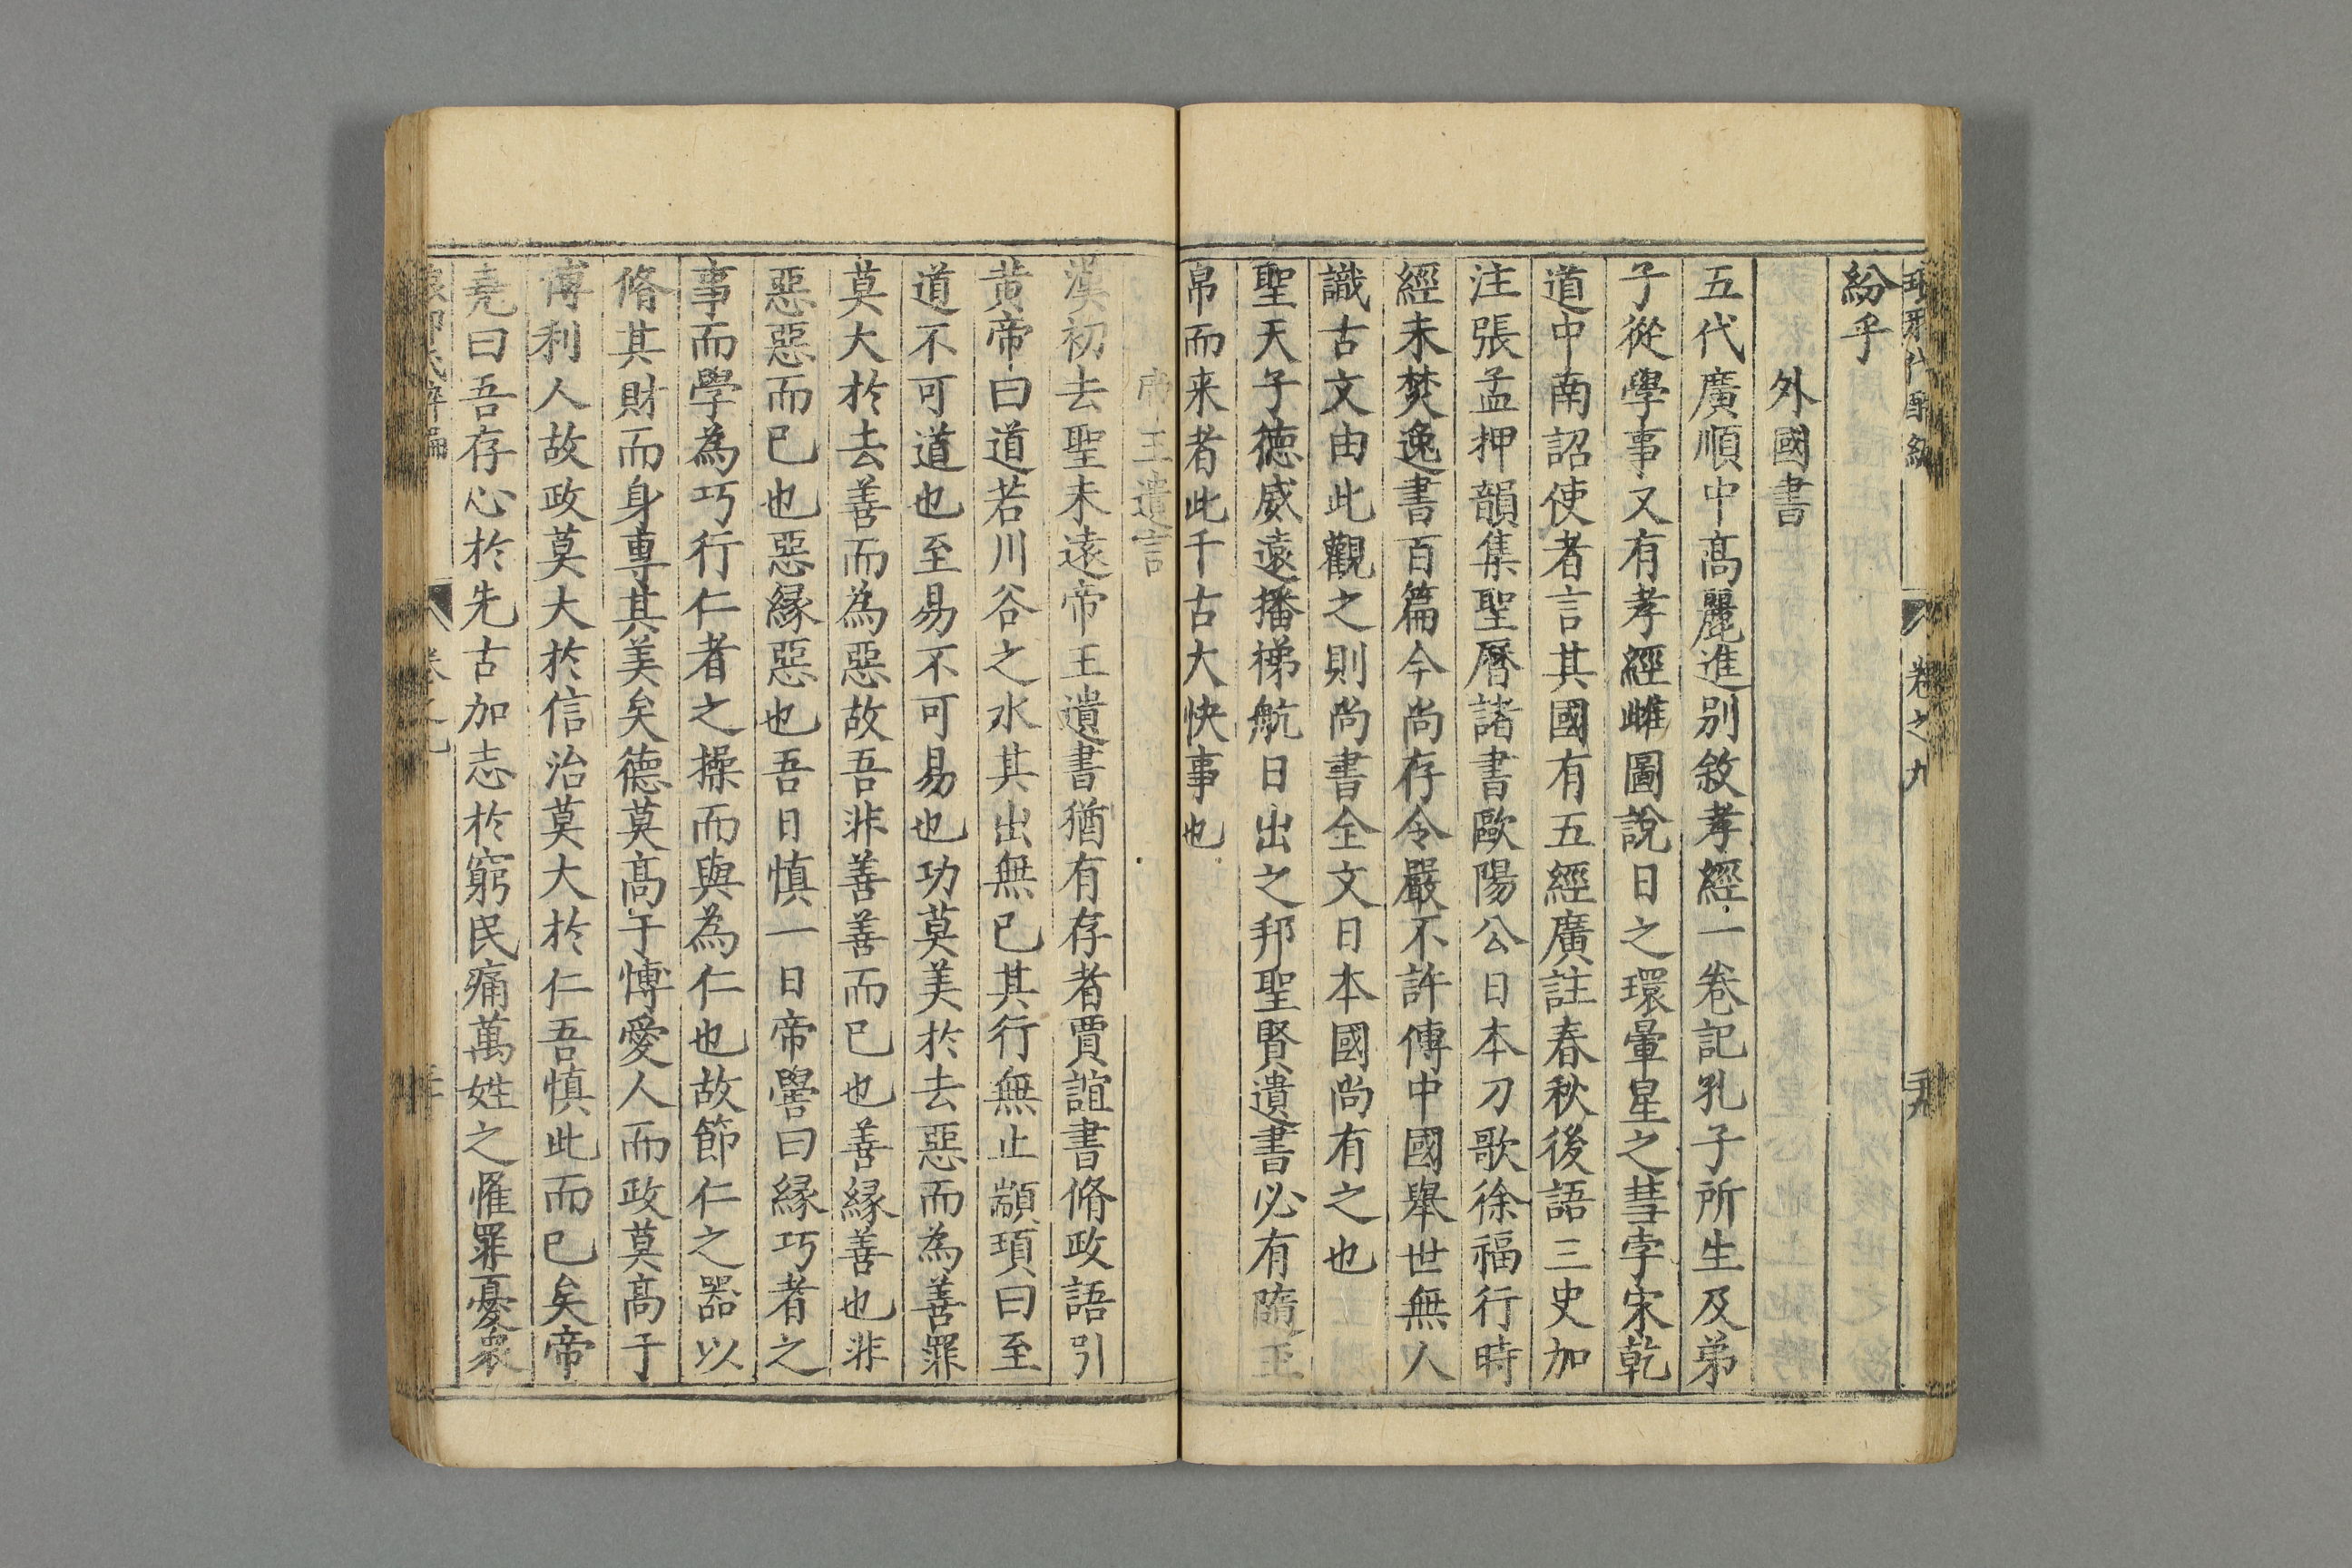 瑯琊代醉編 卷之九 二十九
紛乎
外國書
五代廣順中高麗進別敘孝經一卷記孔子所生及弟
子從學事又有孝經雌圖說日之環暈星之彗孛宋乾
道中南詔使者言其國有五經廣註春秋後語三史加
注張孟押韻集聖曆諸書歐陽公日本刀歌徐福行時
經未焚逸書百篇今尚存令嚴不許傳中國舉世無人
識古文由此觀之則尚書全文日本國尚有之也
聖天子德威遠播梯航日出之邦聖賢遺書必有隨玉
帛而来者此千古大快事也
帝王遺言
漢初去聖未遠帝王遺書猶有存者賈誼書脩政語引
黃帝曰道若川谷之水其出無已其行無止顓頊曰至
道不可道也至易不可易也功莫美於去惡而為善罪
莫大於去善而為惡故吾非善善而已也善緣善也非
惡惡而已也惡緣惡也吾日慎一日帝嚳曰緣巧者之
事而學為巧行仁者之操而與為仁也故節仁之器以
脩其財而身專其美矣德莫高于愽愛人而政莫高于
博利人故政莫大於信治莫大於仁吾慎此而已矣帝
堯曰吾存心於先古加志於窮民痛萬姓之罹罪憂衆
卷之九